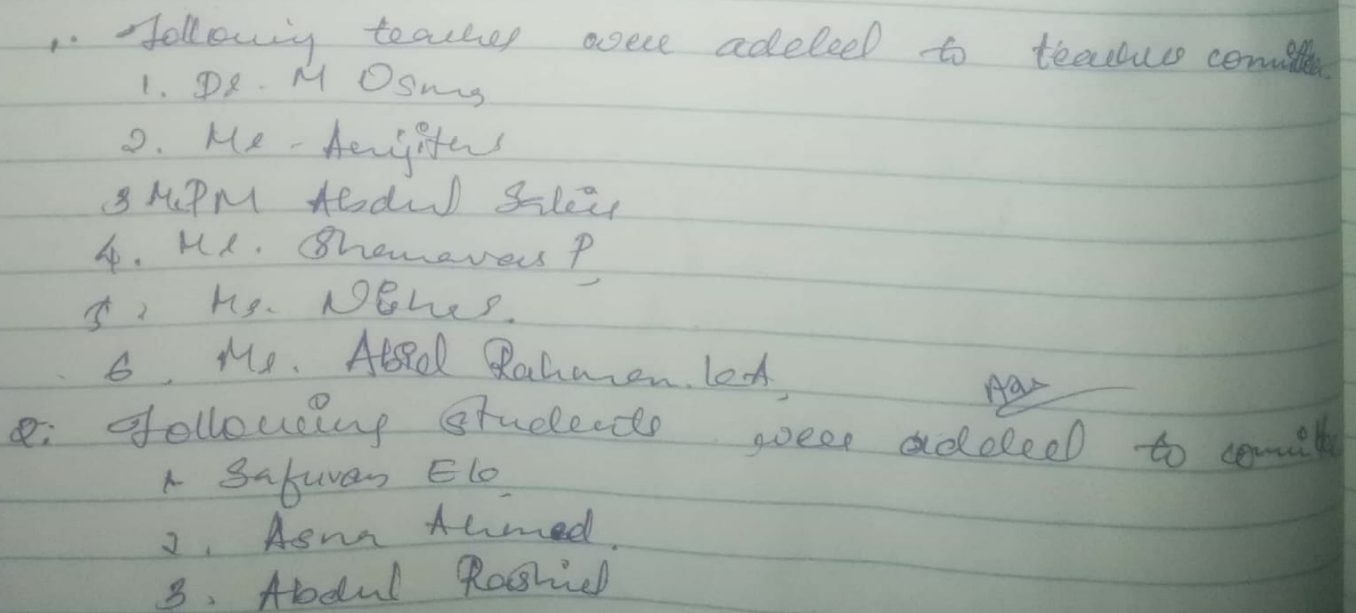 1. Following teachers were added to teachers committee.
1. Dr. M Osma
2. Mr -
3 Mr. PM Abdul Salim
4. Mr. Shanavas P
5. Ms.
6. Mr. Abdul Rahman. K.A
2. Following Students were added to committee
1. Safuvan EK
2. Asna Ahmed.
3. Abdul Rashid